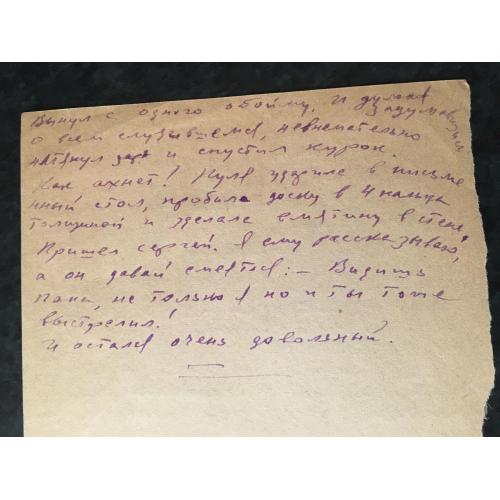 Вынул с одного обойму. И думая
о всем случившемся, невнимательно задумавшись
натянул и спустил курок.
Как ахнет! Пуля ударила в письме
нный стол, пробила доску в 4 пальца
толщиной и сделала вмятину в стене.
Пришел Сергей. Я ему рассказываю,
а он давай смеятся: – Видишь
папа, не только я но и ты тоже
выстрелил!
И остался очень довольный.